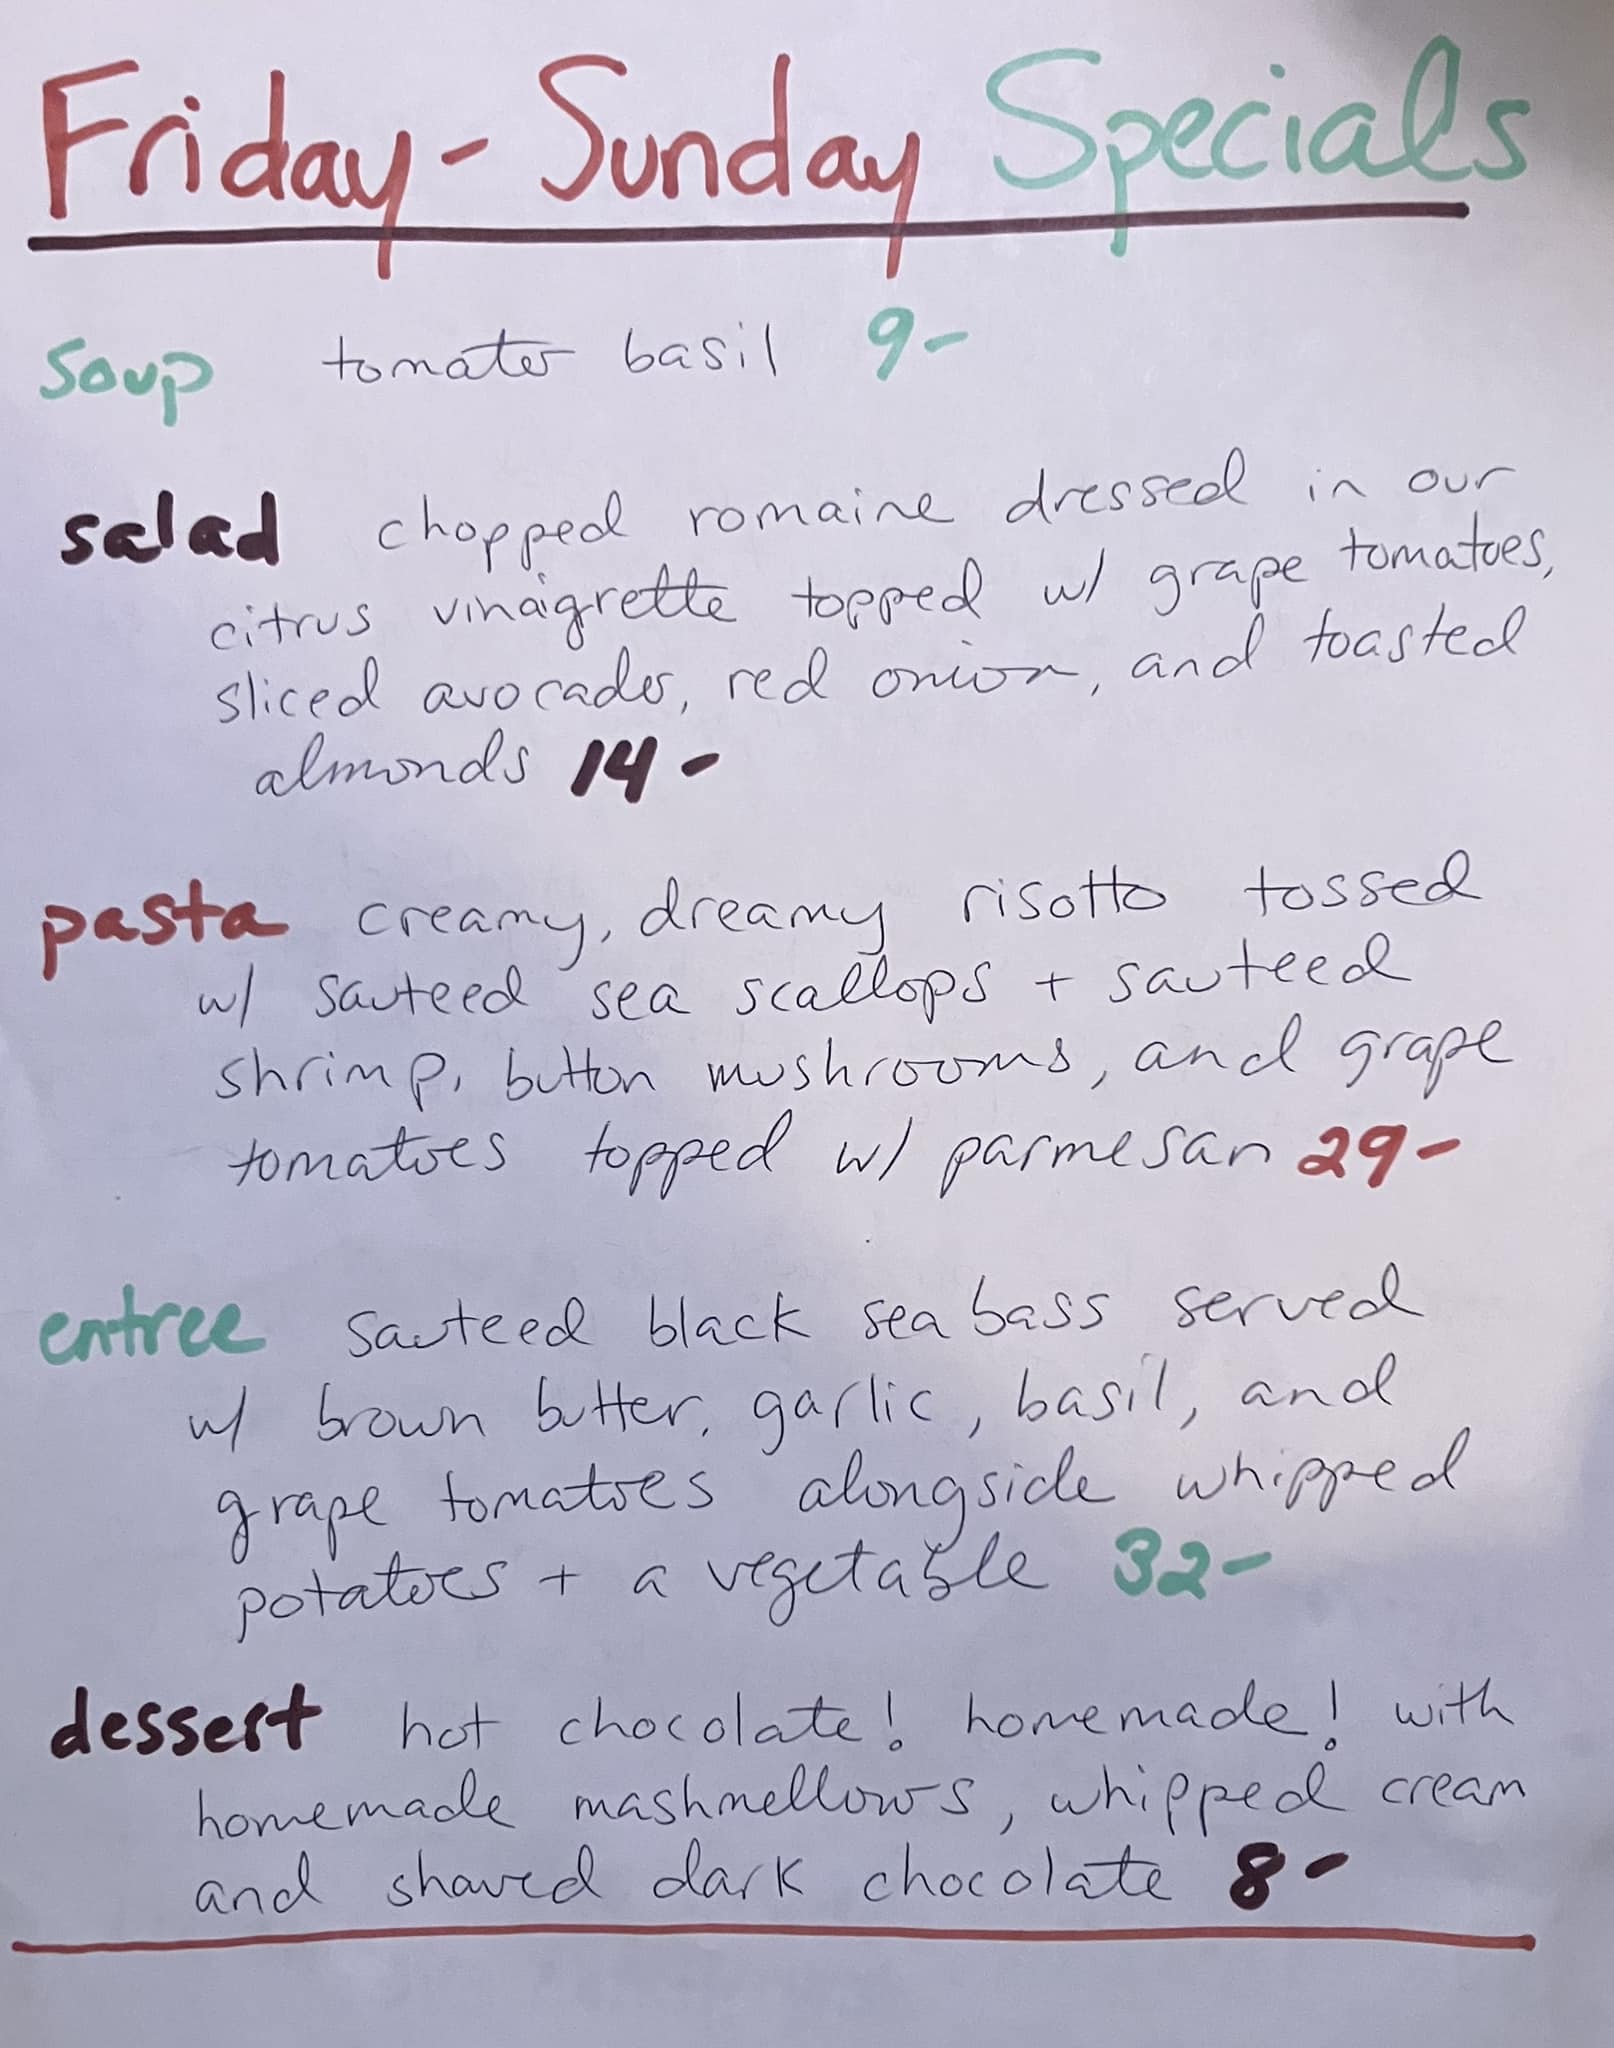 Friday - Sunday Specials
soup tomato basil 9-
salad chopped romaine dressed in our
citrus vinaigrette topped w/ grape tomatoes,
sliced avocado, red onion, and toasted
almonds 14-
pasta creamy, dreamy risotto tossed
w/ sauteed sea scallops + sauteed
shrimp, button mushrooms, and grape
tomatoes topped w/ parmesan 29-
entree sauteed black sea bass served
w/ brown butter, garlic, basil, and
grape tomatoes alongside whipped
potatoes + a vegetable 32-
dessert hot chocolate! homemade! with
homemade mashmellows, whipped cream
and shaved dark chocolate 8-